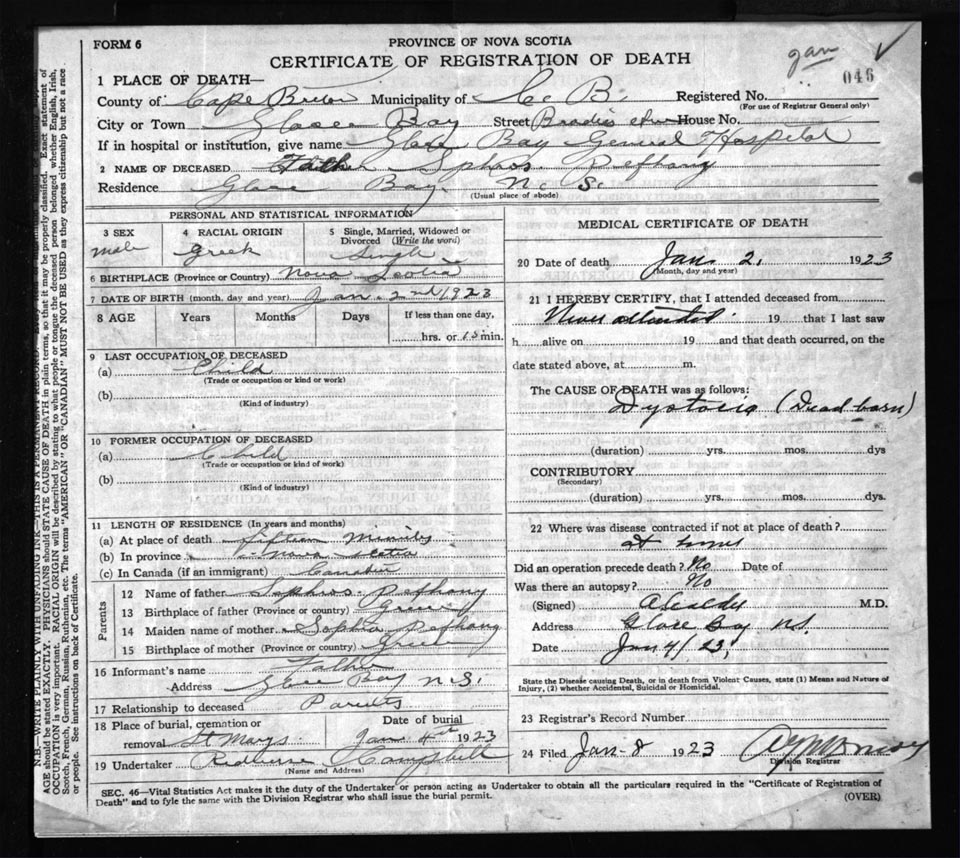 FORM 6
PROVINCE OF NOVA SCOTIA
CERTIFICATE OF REGISTRATION OF DEATH
Jan
046
1 PLACE OF DEATH—
County of Cape Breton Municipality of C. B. Registered No.
(For use of Registrar General only)
City or Town Glace Bay Street House No.
If in hospital or institution, give name Glace Bay General Hospital
2 NAME OF DECEASED Sophros Pefhany
Residence Glace Bay N. S.
(Usual place of abode)
PERSONAL AND STATISTICAL INFORMATION
3 SEX 4 RACIAL ORIGIN 5 Single, Married, Widowed or Divorced (Write the word)
male Greek Single
6 BIRTHPLACE (Province or Country) Nova Scotia
7 DATE OF BIRTH (month, day and year) Jan. 2nd 1923
8 AGE Years Months Days If less than one day,
hrs. or 15 min.
9 LAST OCCUPATION OF DECEASED
(a) Child
(Trade or occupation or kind or work)
(b)
(Kind of industry)
10 FORMER OCCUPATION OF DECEASED
(a) Child
(Trade or occupation or kind of work)
(b)
(Kind of industry)
11 LENGTH OF RESIDENCE (In years and months)
(a) At place of death fifteen minutes
(b) In province Nova Scotia
(c) In Canada (if an immigrant)
Parents
12 Name of father Sophros Pefhany
13 Birthplace of father (Province or country)
14 Maiden name of mother Sophia Pefhany
15 Birthplace of mother (Province or country)
16 Informant's name Father
Address Glace Bay N.S.
17 Relationship to deceased Parents
18 Place of burial, cremation or removal St Marys Date of burial Jan 4th 1923
19 Undertaker Campbell
(Name and Address)
MEDICAL CERTIFICATE OF DEATH
20 Date of death Jan 2, 1923
(Month, day and year)
21 I HEREBY CERTIFY, that I attended deceased from
Never attended. 19 that I last saw
h alive on 19 and that death occurred, on the
date stated above, at m.
The CAUSE OF DEATH was as follows:
Dystocia (Dead born)
(duration) yrs. mos. dys
CONTRIBUTORY
(Secondary)
(duration) yrs. mos. dys.
22 Where was disease contracted if not at place of death?
at home
Did an operation precede death? No Date of
Was there an autopsy? No
(Signed) M.D.
Address Glace Bay N.S.
Date Jan 4/23,
State the Disease causing Death, or in death from Violent Causes, state (1) Means and Nature of
Injury, (2) whether Accidental, Suicidal or Homicidal.
23 Registrar's Record Number
24 Filed Jan-8 1923
Division Registrar
SEC. 46—Vital Statistics Act makes it the duty of the Undertaker or person acting as Undertaker to obtain all the particulars required in the "Certificate of Registration of
Death" and to fyle the same with the Division Registrar who shall issue the burial permit.
(OVER)
N.B.—WRITE PLAINLY WITH UNFADING INK—THIS IS A PERMANENT RECORD.
AGE should be stated EXACTLY. PHYSICIANS should STATE CAUSE OF DEATH in plain terms, so that it may be properly classified. Exact statement of
OCCUPATION is very important. RACIAL ORIGIN will be described by stating to what people or tongue the deceased person belonged whether English, Irish,
Scotch, French, German, Russian, Ruthenian, etc. The terms "AMERICAN" OR "CANADIAN" MUST NOT BE USED as they express citizenship but not a race
or people. See instructions on back of Certificate.